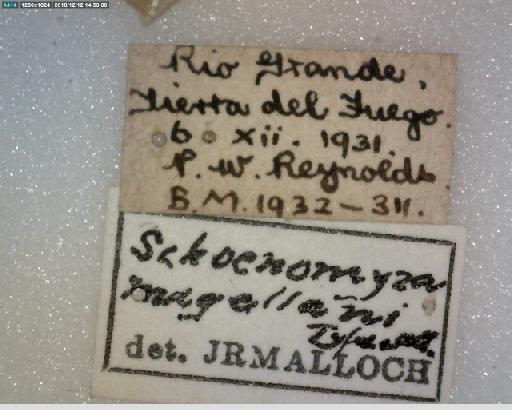 A414 1280x1024 2018/12/12 14:53:00
Rio Grande,
Tierra del Fuego.
6 xii. 1931.
P. W. Reynolds.
B.M. 1932-311.
Schoenomyza
magellani
Type
det. JRMALLOCH